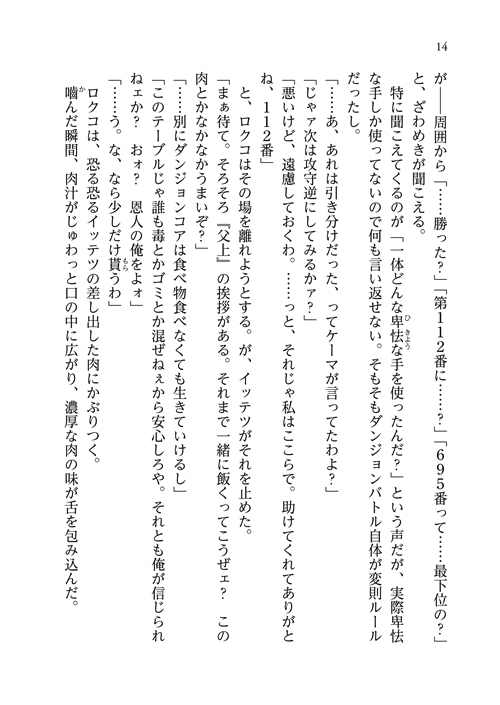 14
が――周囲から「……勝った？」「第１１２番に……？」「６９５番って……最下位の？」
と、ざわめきが聞こえる。
　特に聞こえてくるのが「一体どんな卑怯な手を使ったんだ？」という声だが、実際卑怯
な手しか使ってないので何も言い返せない。そもそもダンジョンバトル自体が変則ルール
だったし。
「……あ、あれは引き分けだった、ってケーマが言ってたわよ？」
「じゃァ次は攻守逆にしてみるかァ？」
「悪いけど、遠慮しておくわ。……っと、それじゃ私はここらで。助けてくれてありがと
ね、１１２番」
　と、ロクコはその場を離れようとする。が、イッテツがそれを止めた。
「まぁ待て。そろそろ『父上』の挨拶がある。それまで一緒に飯くってこうぜェ？　この
肉とかなかなかうまいぞ？」
「……別にダンジョンコアは食べ物食べなくても生きていけるし」
「このテーブルじゃ誰も毒とかゴミとか混ぜねぇから安心しろや。それとも俺が信じられ
ねェか？　おォ？　恩人の俺をよォ」
「……う。な、なら少しだけ貰うわ」
　ロクコは、恐る恐るイッテツの差し出した肉にかぶりつく。
　嚙んだ瞬間、肉汁がじゅわっと口の中に広がり、濃厚な肉の味が舌を包み込んだ。